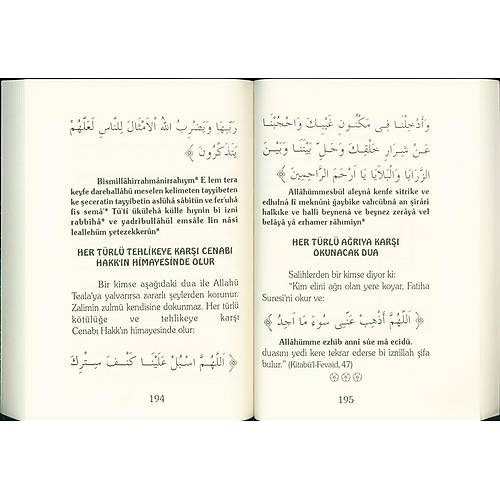 رَبِّهَا وَيَضْرِبُ اللهُ الْاَمْثَالَ لِلنَّاسِ لَعَلَّهُمْ
يَتَذَكَّرُونَ ﴾
Bismillâhirrahmânirrahıym* E lem tera
keyfe dareballâhü meselen kelimeten tayyibeten
ke şeceratin tayyibetin aslühâ sâbitün ve fer'uhâ
fis semâ'* Tü'tî ükülehâ külle hıynin bi izni
rabbihâ* ve yadribullâhül emsâle lin nâsi
leallehüm yetezekkerûn*
HER TÜRLÜ TEHLİKEYE KARŞI CENABI
HAKK'IN HİMAYESİNDE OLUR
Bir kimse aşağıdaki dua ile Allahü
Teala'ya yalvarırsa zararlı şeylerden korunur.
Zalimin zulmü kendisine dokunmaz. Her türlü
kötülüğe ve tehlikeye karşı
Cenabı Hakk'ın himayesinde olur:
﴿ اَللّٰهُمَّ اسْبُلْ عَلَيْنَا كَنَفَ سِتْرِكَ
194
وَاَدْخِلْنَا فِى مَكْنُونِ غَيْبِكَ وَاحْجُبْنَا
عَنْ شِرَارِ خَلْقِكَ وَحَلِّ بَيْنَنَا وَبَيْنَ
الرَّزَايَا وَالْبَلَايَا يَا اَرْحَمَ الرَّاحِمِينَ ﴾
Allâhümmesbül aleynâ kenfe sitrike ve
edhılnâ fî meknûni ğaybike vahcübnâ an şirâri
halkıke ve halli beynenâ ve beynez zerâyâ vel
belâyâ yâ erhamer râhımiyn*
HER TÜRLÜ AĞRIYA KARŞI
OKUNACAK DUA
Salihlerden bir kimse diyor ki:
"Kim elini ağrı olan yere koyar, Fatiha
Suresi'ni okur ve:
﴿ اَللّٰهُمَّ أَذْهِبْ عَنِّى سُوءَ مَا اَجِدُ ﴾
Allâhümme ezhib annî sûe mâ ecidü.
duasını yedi kere tekrar ederse bi iznillah şifa
bulur." (Kitabü'l-Fevaid, 47)
195